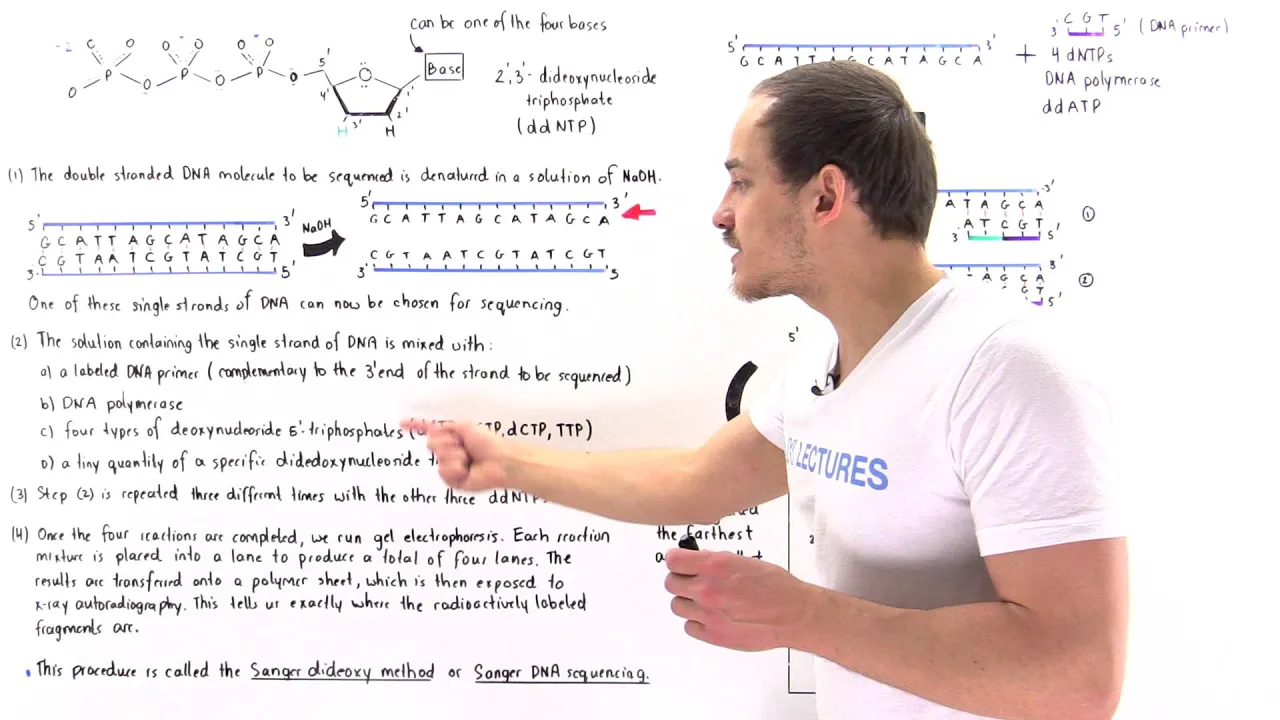 can be one of the four bases
Base
2',3'- dideoxynucleoside
triphosphate
(ddNTP)
(1) The double stranded DNA molecule to be sequenced is denatured in a solution of NaOH.
5' 3'
G C A T T A G C A T A G C A
C G T A A T C G T A T C G T
3' 5'
NaOH
5' 3'
G C A T T A G C A T A G C A
C G T A A T C G T A T C G T
3' 5
One of these single strands of DNA can now be chosen for sequencing.
(2) The solution containing the single strand of DNA is mixed with:
a) a labeled DNA primer (complementary to the 3' end of the strand to be sequenced)
b) DNA polymerase
c) four types of deoxynucleoside 5'-triphosphates dCTP, TTP)
D) a tiny quantity of a specific didedoxynucleotide
(3) Step (2) is repeated three different times with the other three ddNTPs
(4) Once the four reactions are completed, we run gel electrophoresis. Each reaction
mixture is placed into a lane to produce a total of four lanes. The
results are transferred onto a polymer sheet, which is then exposed to
x-ray autoradiography. This tells us exactly where the radioactively labeled
fragments are.
This procedure is called the Sanger dideoxy method or Sanger DNA sequencing.
5' 3'
G C A T T A G C A T A G C A
+
C G T
3' 5' (DNA primer)
4 dNTPs
DNA polymerase
ddATP
A T A G C A 3'
A T C G T
3' 5'
1
A G C A 3'
G T 5'
2
5'
the farthest
LECTURES